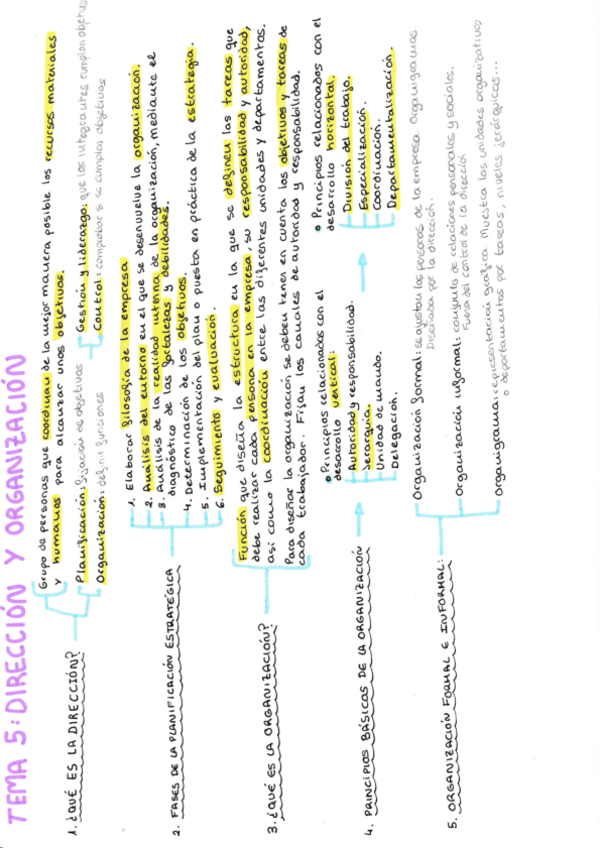 TEMA 5: DIRECCIÓN Y ORGANIZACIÓN
1. ¿QUÉ ES LA DIRECCIÓN?
Grupo de personas que coordinan de la mejor manera posible los recursos materiales
y humanos para alcanzar unos objetivos.
Planificación: fijación de objetivos
Organización: definir funciones
Gestión y liderazgo: que los integrantes cumplan objetivos
Control: comprobar si se cumplen objetivos
2. FASES DE LA PLANIFICACIÓN ESTRATÉGICA
1. Elaborar filosofía de la empresa
2. Análisis del entorno en el que se desenvuelve la organización.
3. Análisis de la realidad interna de la organización, mediante el
diagnóstico de las fortalezas y debilidades.
4. Determinación de los objetivos.
5. Implementación del plan o puesta en práctica de la estrategia.
6. Seguimiento y evaluación.
3. ¿QUÉ ES LA ORGANIZACIÓN?
Función que diseña la estructura en la que se definen las tareas que
debe realizar cada persona en la empresa, su responsabilidad y autoridad,
así como la coordinación entre las diferentes unidades y departamentos.
Para diseñar la organización se deben tener en cuenta los objetivos y tareas de
cada trabajador. Fijan los canales de autoridad y responsabilidad.
4. PRINCIPIOS BÁSICOS DE LA ORGANIZACIÓN
Principios relacionados con el
desarrollo vertical:
Autoridad y responsabilidad.
Jerarquía.
Unidad de mando.
Delegación.
Principios relacionados con el
desarrollo horizontal:
División del trabajo.
Especialización.
Coordinación.
Departamentalización.
5. ORGANIZACIÓN FORMAL E INFORMAL:
Organización formal: se ajustan las personas de la empresa. Organigramas
Diseñada por la dirección.
Organización informal: conjunto de relaciones personales y sociales.
Fuera del control de la dirección
Organigrama: representación gráfica. Muestra las unidades organizativas
o departamentos por tareas, niveles jerárquicos...